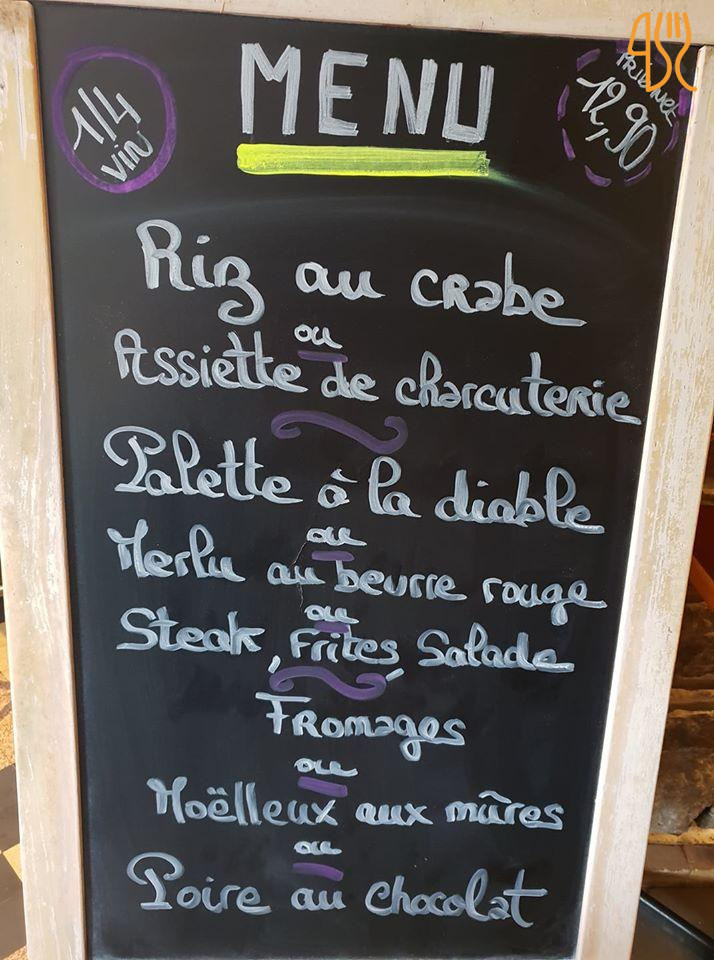 1/4
vin
MENU
12,90
Riz au crabe
ou
Assiette de charcuterie
Palette à la diable
ou
Merlu au beurre rouge
ou
Steak, Frites, Salade
Fromages
ou
Moëlleux aux mûres
ou
Poire au chocolat